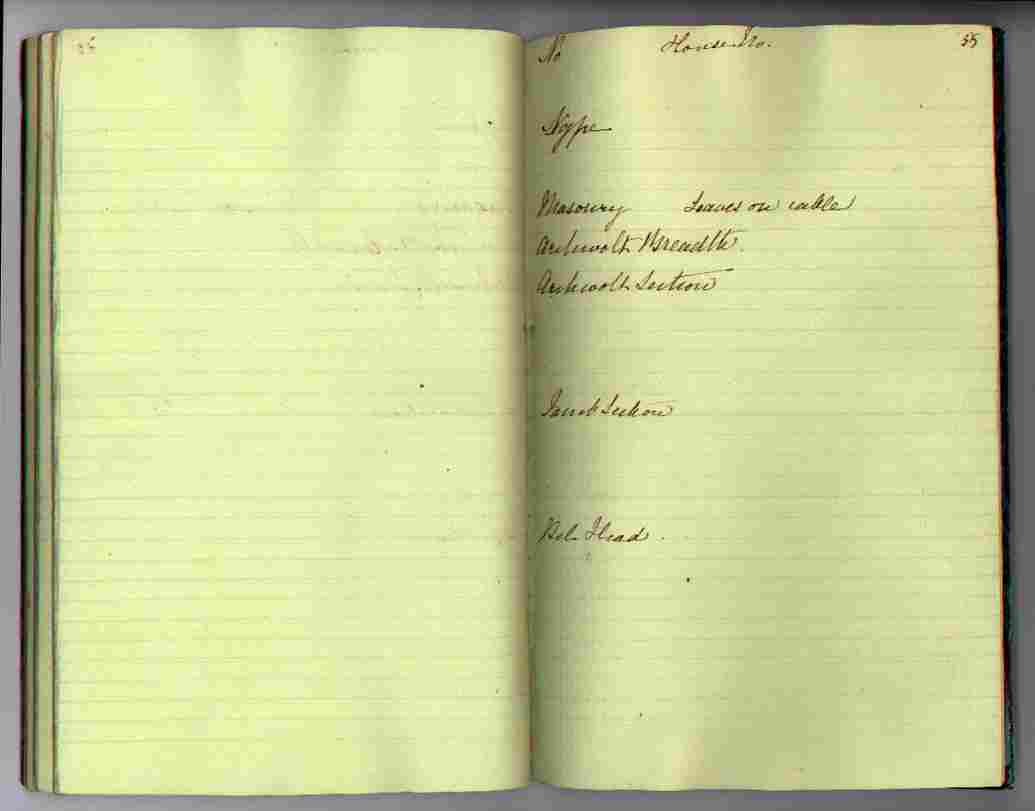 No House No. 55
Type
Masonry Leaves on cable
Archivolt Breadth.
Archivolt Section
Jamb Section
Bel. Head.